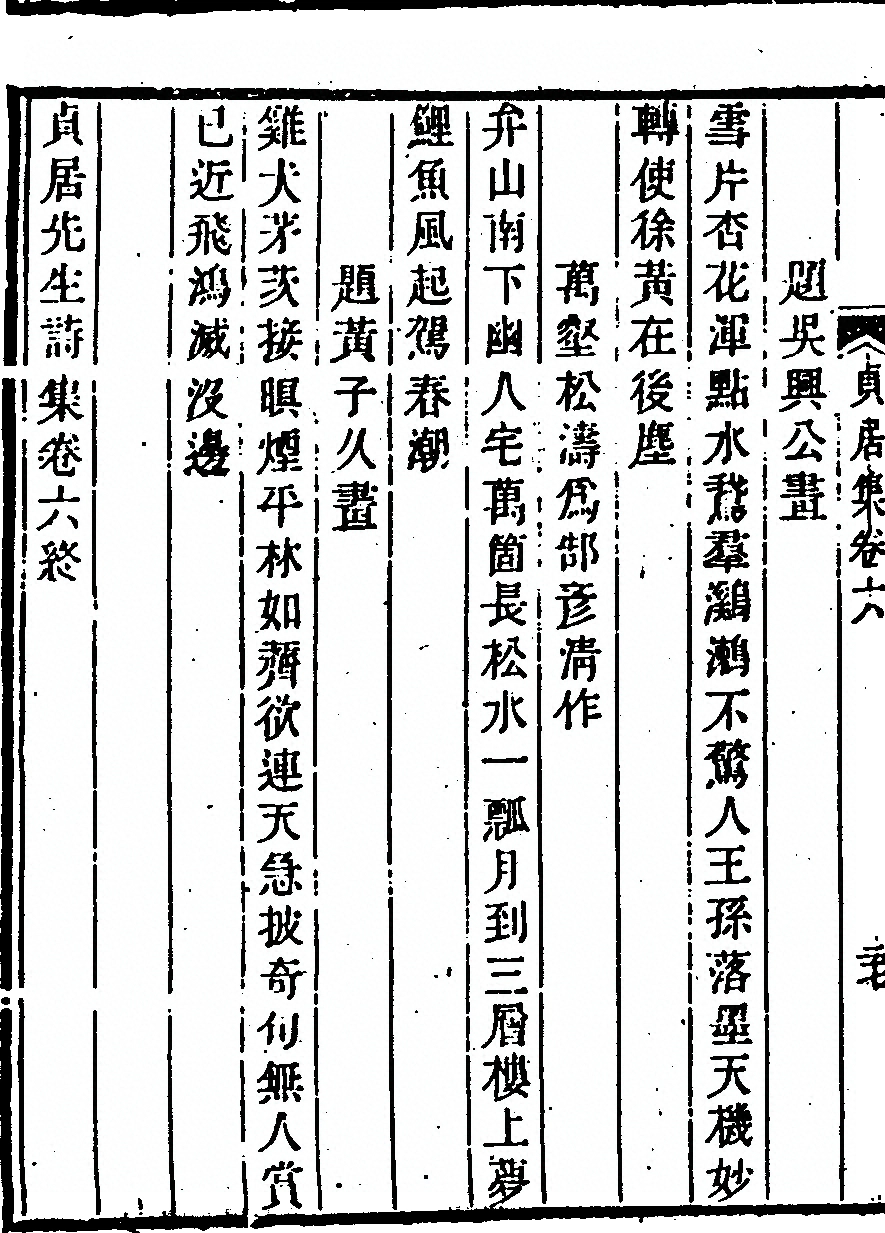 貞居集卷六
題吳興公畫
雪片杏花渾點水鵞羣鸂鶒不驚人王孫落墨天機妙
轉使徐黃在後塵
萬壑松濤爲郜彥清作
弁山南下幽人宅萬箇長松水一瓢月到三層樓上夢
鯉魚風起駕春潮
題黃子久畫
雞犬茅茨接暝煙平林如薺欲連天急披奇句無人賞
已近飛鴻滅沒邊
貞居先生詩集卷六終